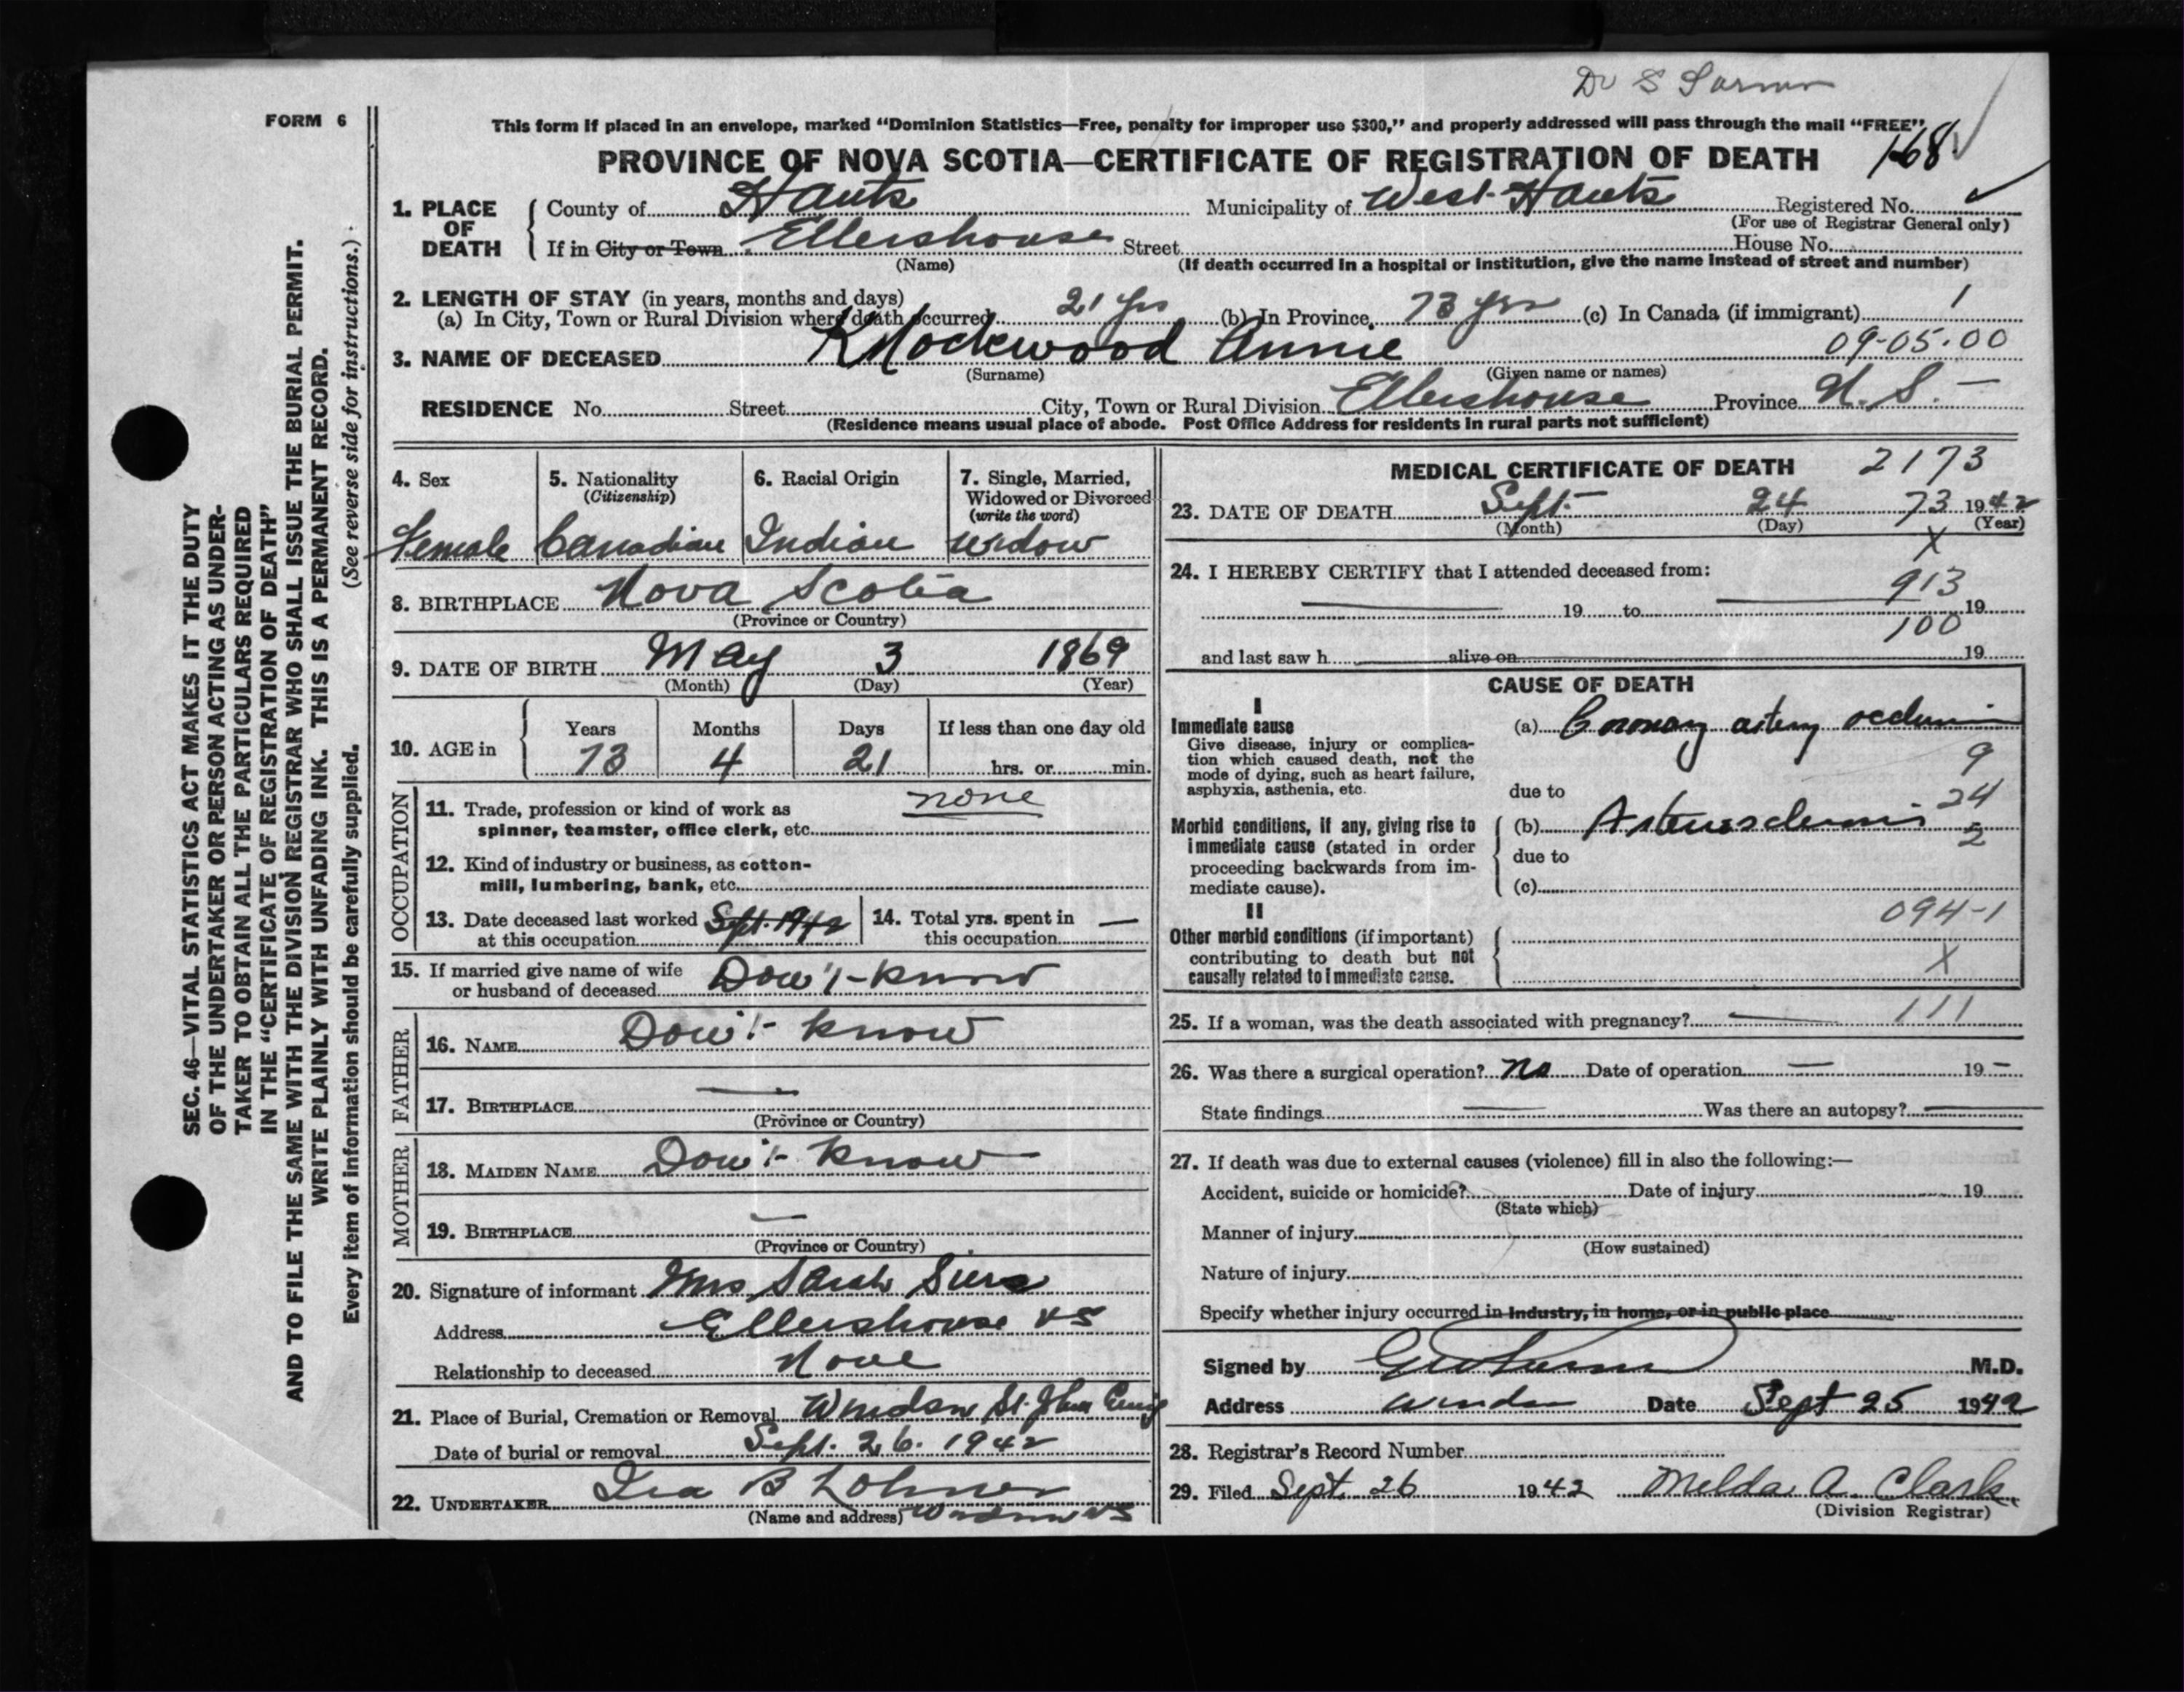 FORM 6
This form if placed in an envelope, marked "Dominion Statistics—Free, penalty for improper use $300," and properly addressed will pass through the mail "FREE".
PROVINCE OF NOVA SCOTIA—CERTIFICATE OF REGISTRATION OF DEATH 168
1. PLACE OF DEATH
County of Hants Municipality of West Hants Registered No.
(For use of Registrar General only)
If in City or Town Ellershouse Street House No.
(Name) (If death occurred in a hospital or institution, give the name instead of street and number)
2. LENGTH OF STAY (in years, months and days)
(a) In City, Town or Rural Division where death occurred 21 yrs (b) In Province 73 yrs (c) In Canada (if immigrant) 1
3. NAME OF DECEASED Knockwood Annie 09-05.00
(Surname) (Given name or names)
RESIDENCE No. Street City, Town or Rural Division Ellershouse Province N.S.
(Residence means usual place of abode. Post Office Address for residents in rural parts not sufficient)
4. Sex
Female
5. Nationality
(Citizenship)
Canadian
6. Racial Origin
Indian
7. Single, Married,
Widowed or Divorced
(write the word)
widow
8. BIRTHPLACE Nova Scotia
(Province or Country)
9. DATE OF BIRTH May 3 1869
(Month) (Day) (Year)
10. AGE in
Years Months Days If less than one day old
73 4 21 hrs. or min.
OCCUPATION
11. Trade, profession or kind of work as none
spinner, teamster, office clerk, etc.
12. Kind of industry or business, as cotton-
mill, lumbering, bank, etc.
13. Date deceased last worked Sept. 1942
at this occupation
14. Total yrs. spent in —
this occupation
15. If married give name of wife
or husband of deceased Don't know
FATHER
16. NAME Don't know
17. BIRTHPLACE —
(Province or Country)
MOTHER
18. MAIDEN NAME Don't know
19. BIRTHPLACE —
(Province or Country)
20. Signature of informant Mrs Sarah
Address Ellershouse NS
Relationship to deceased None
21. Place of Burial, Cremation or Removal Windsor St. John
Date of burial or removal Sept. 26. 1942
22. UNDERTAKER Ira B Lohnes
(Name and address) Windsor NS
MEDICAL CERTIFICATE OF DEATH 2173
23. DATE OF DEATH Sept. 24 73 1942
(Month) (Day) (Year)
X
24. I HEREBY CERTIFY that I attended deceased from:
913
19 to 19
100
and last saw h alive on 19
CAUSE OF DEATH
I
Immediate cause
Give disease, injury or complica-
tion which caused death, not the
mode of dying, such as heart failure,
asphyxia, asthenia, etc.
(a) Coronary artery occlusion
9
due to
24
Morbid conditions, if any, giving rise to
immediate cause (stated in order
proceeding backwards from im-
mediate cause).
(b) Arteriosclerosis
2
due to
(c)
II
094-1
Other morbid conditions (if important)
contributing to death but not
causally related to immediate cause.
X
25. If a woman, was the death associated with pregnancy? — 111
26. Was there a surgical operation? No Date of operation — 19 —
State findings — Was there an autopsy? —
27. If death was due to external causes (violence) fill in also the following:—
Accident, suicide or homicide? Date of injury 19
(State which)
Manner of injury
(How sustained)
Nature of injury
Specify whether injury occurred in industry, in home, or in public place
Signed by M.D.
Address Windsor Date Sept 25 1942
28. Registrar's Record Number
29. Filed Sept. 26 1942 Melda A. Clark
(Division Registrar)
SEC. 46—VITAL STATISTICS ACT MAKES IT THE DUTY
OF THE UNDERTAKER OR PERSON ACTING AS UNDER-
TAKER TO OBTAIN ALL THE PARTICULARS REQUIRED
IN THE "CERTIFICATE OF REGISTRATION OF DEATH"
AND TO FILE THE SAME WITH THE DIVISION REGISTRAR WHO SHALL ISSUE THE BURIAL PERMIT.
WRITE PLAINLY WITH UNFADING INK. THIS IS A PERMANENT RECORD.
Every item of information should be carefully supplied. (See reverse side for instructions.)